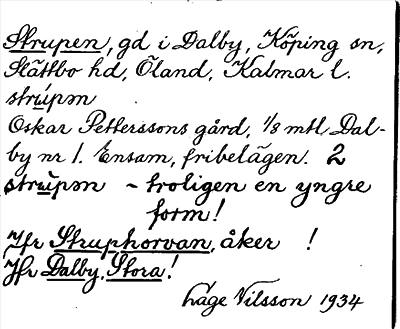 Strupen, gd i Dalby, Köping sn,
Slättbo hd, Öland, Kalmar l.
strúpm
Oskar Petterssons gård, 1/8 mtl Dal-
by nr 1. Ensam, fribelägen. 2
strúpm - troligen en yngre
form!
Jfr Struphorvan, åker !
Jfr Dalby, Stora!
Låge Nilsson 1934